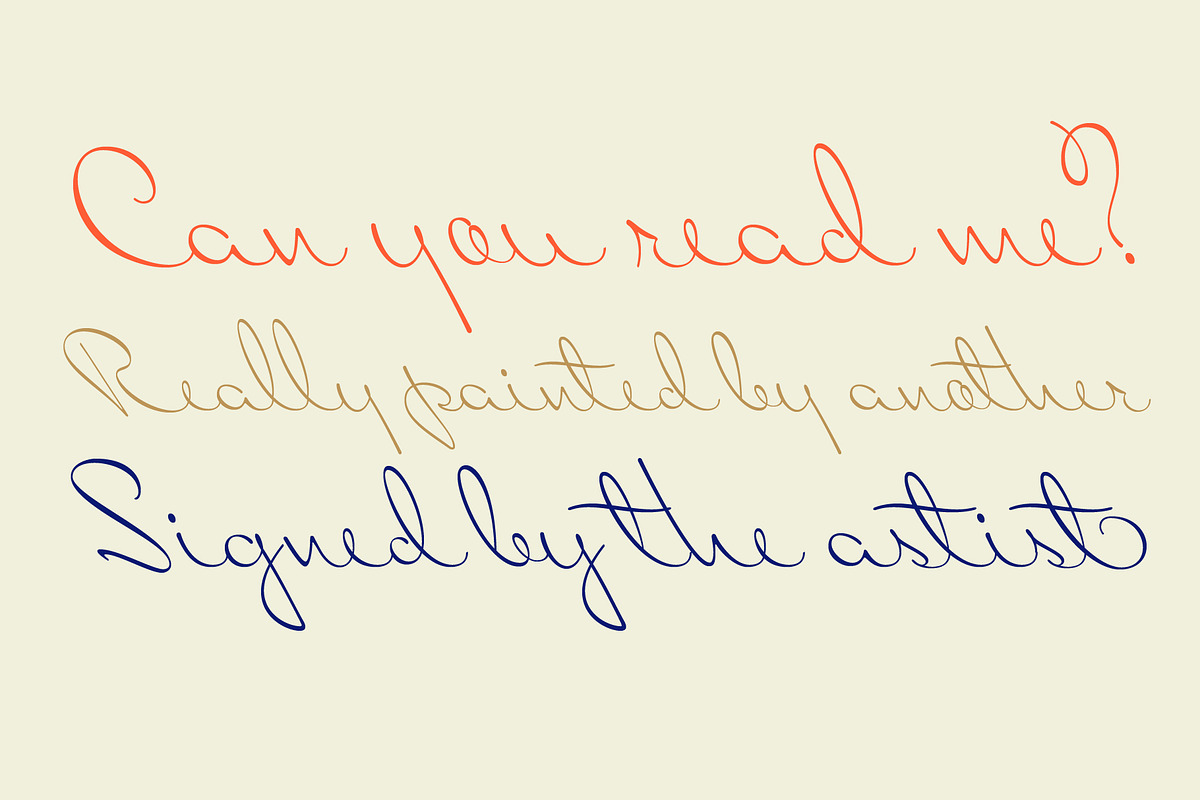 Can you read me?
Really painted by another
Signed by the astist